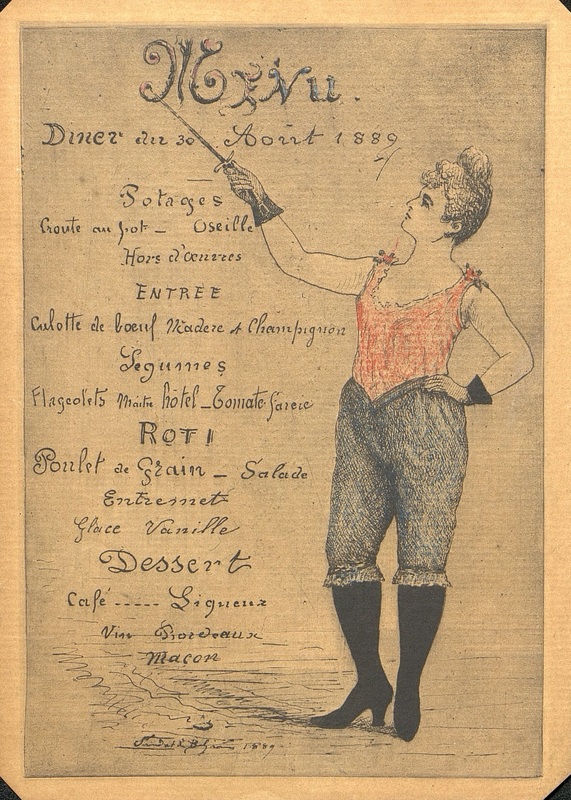 Menu.
Diner du 30 Août 1889
Potages
Croute au pot - Oseille
Hors d'œuvres
ENTREE
Culotte de boeuf Madere & Champignon
Legumes
Flageolets Maitre hôtel - Tomate farcie
ROTI
Poulet de Grain - Salade
Entremet
Glace Vanille
Dessert
Café ----- Liqueur
Vin Bordeaux
Maçon
1889